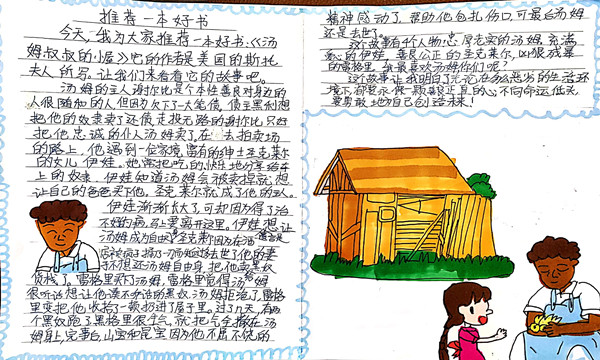 推荐一本好书
今天,我为大家推荐一本好书:《汤
姆叔叔的小屋》它的作者是美国的斯托
夫人所写。让我们来看看它的故事吧。
汤姆的主人谢尔比是个本性善良对身边的
人很随和的人但因为欠下了一大笔债,债主黑利想
把他的奴隶卖了还债走投无路的谢尔比只好
把他忠诚的仆人汤姆卖了,在去拍卖场
的路上,他遇到一位家境富有的绅士圣克莱尔
的女儿伊娃。她常把吃的
上的奴隶,伊娃知道汤姆会被卖掉就想
让自己的爸爸买下他,圣克莱尔就成了他的主人。
伊娃渐渐长大了,可却因为得了治
不好的病,马上要离开这里,伊娃想让
汤姆成为自由
去世了他的妻
子不想还汤姆自由身,把他卖
雷格里买下汤姆,雷格里觉得汤姆
很听话想让他凑不听话的黑奴,汤姆拒绝了,雷格
里变把他收拾了一顿扔进了屋子里。过了几天,有两
个黑奴跑了雷格里很生气,就把气全撒在汤
姆身上,
精神感动了,帮助他包扎伤口,可最后汤姆
还是去世了。
这个故事有4个人物:忠厚老实的汤姆、充满
的伊娃、善良公正的圣克莱尔,凶狠残暴
的雷格里,我最喜欢汤姆你们呢?
这个故事让我明白了无论在多么恶劣的生活环
境下都要永保一颗善良正直的心不向命运低头
要勇敢地为自己创造未来!